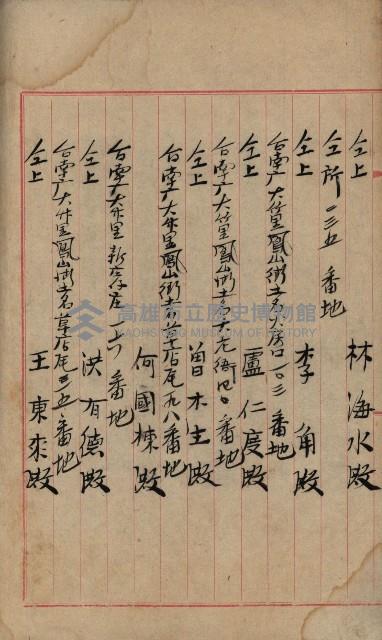 仝上 林海水殿
仝所一三五番地
仝上 李角殿
台南廳大竹里鳳山街土名火房口一〇三番地
仝上 盧仁度殿
台南廳大竹里鳳山街土名大老衙 番地
仝上 曾木生殿
台南廳大竹里鳳山街土名草店尾九八番地
何國棟殿
台南廳大竹里新庄 番地
仝上 洪有德殿
台南廳大竹里鳳山街土名草店尾三五番地
仝上 王東來殿
高雄市立歷史博物館
KAOHSIUNG MUSEUM OF HISTORY